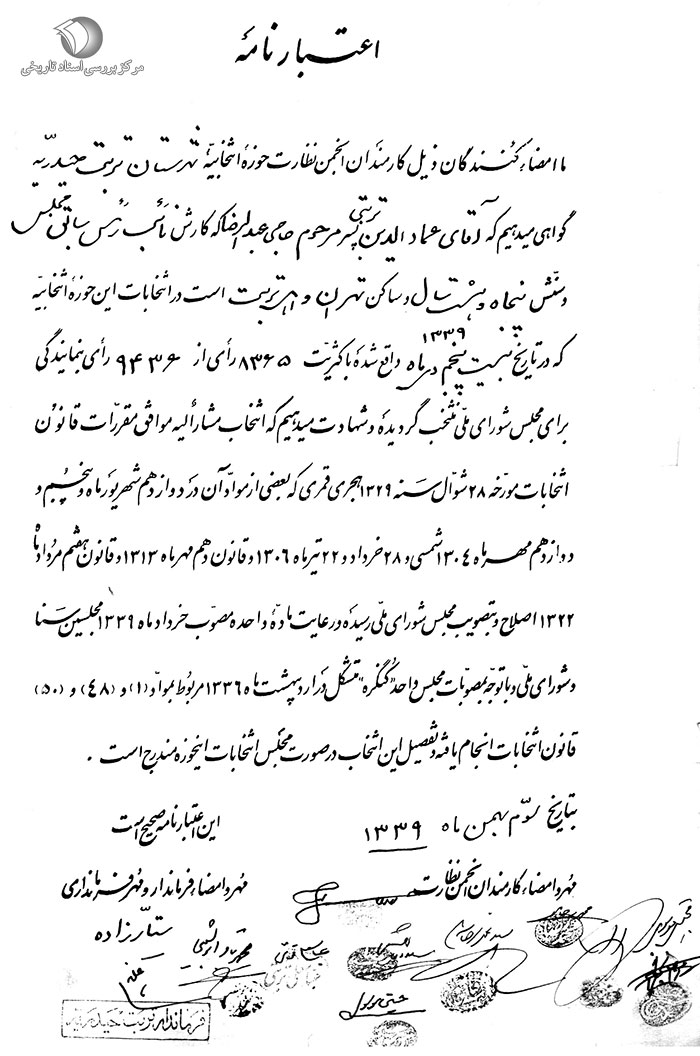 مرکز بررسی اسناد تاریخی
اعتبارنامهٔ
ما امضاء کنندگان ذیل کارمندان انجمن نظارت حوزهٔ انتخابیهٔ شهرستان تربت حیدریه
گواهی میدهیم که آقای عمادالدین تربتی پسر مرحوم حاجی عبدالرضا که کارش نائب رئیس سابق مجلس
و سنش پنجاه و هشت سال و ساکن تهران و اهل تربت است در انتخابات این حوزهٔ انتخابیه
که در تاریخ بیست پنجم دی ماه ۱۳۳۹ واقع شده با کثریت ۸۳۶۵ رأی از ۹۴۳۶ رأی بنمایندگی
برای مجلس شورای ملی منتخب گردیده و شهادت میدهیم که انتخاب مشارالیه موافق مقررات قانون
انتخابات مورخه ۲۸ شوال سنه ۱۳۲۹ هجری قمری که بعضی از مواد آن در دوازدهم شهریور ماه و پنجم و
دوازدهم مهرماه ۱۳۰۴ شمسی و ۲۸ خرداد و ۲۲ تیرماه ۱۳۰۶ و قانون دهم مهرماه ۱۳۱۳ و قانون هفتم مرداد ماه
۱۳۲۲ اصلاح و بتصویب مجلس شورای ملی رسیده و رعایت مادهٔ واحده مصوب خرداد ماه ۱۳۳۹ مجلسین سنا
و شورای ملی و با توجه بمصوبات مجلس واحد "کنگره" متشکل در اردیبهشت ماه ۱۳۳۶ مربوط بمواد (۱) و (۴۸) و (۵۰)
قانون انتخابات انجام یافته و تفصیل این انتخاب در صورت مجلس انتخابات اینحوزه مندرج است .
بتاریخ سوم بهمن ماه ۱۳۳۹
این اعتبارنامه صحیح است
مهر و امضاء کارمندان انجمن نظارت
مهر و امضاء فرماندار و مهر فرمانداری
ستارزاده
فرماندار تربت حیدریه